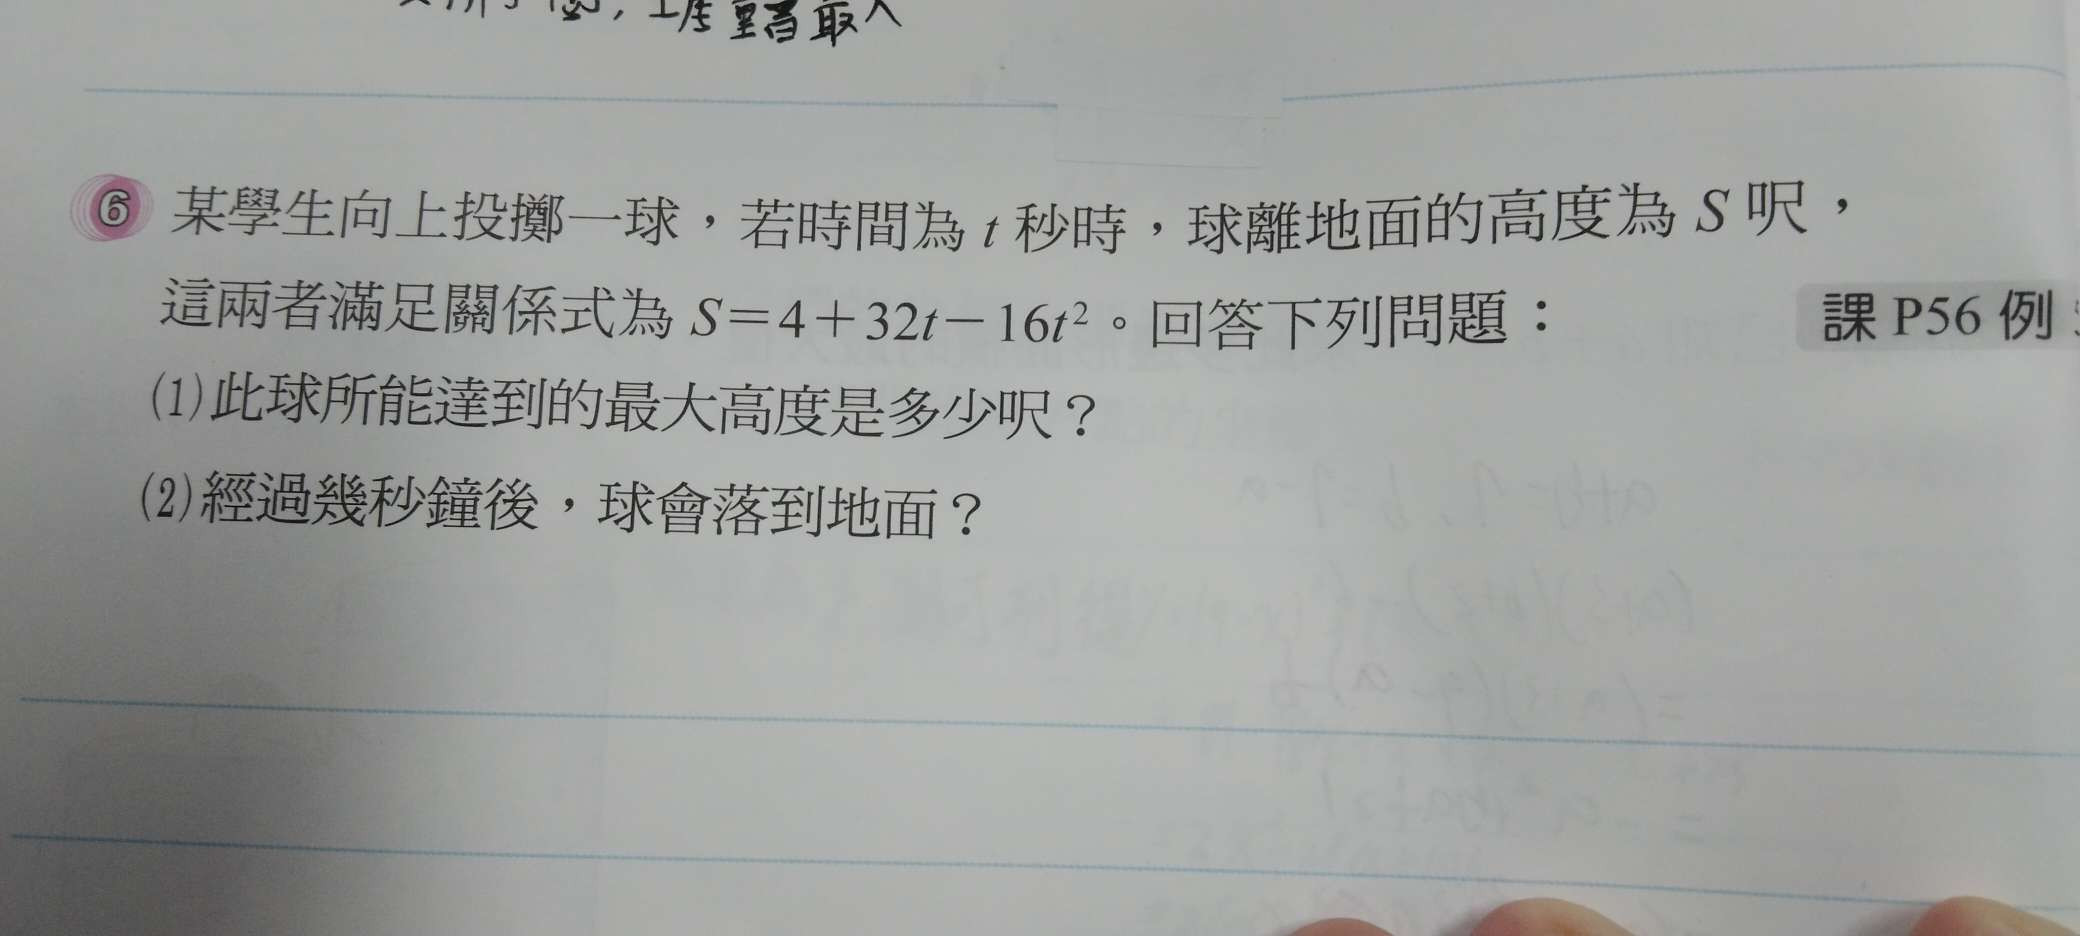 ⑥ 某學生向上投擲一球，若時間為 t 秒時，球離地面的高度為 S 呎，
這兩者滿足關係式為 S＝4＋32t－16t²。回答下列問題：
課 P56 例
(1)此球所能達到的最大高度是多少呎？
(2)經過幾秒鐘後，球會落到地面？